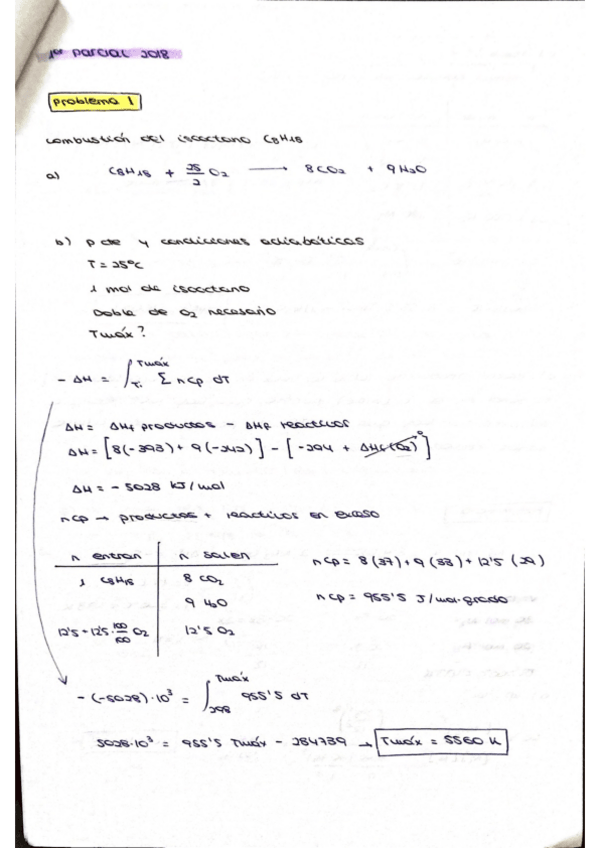 1er parcial 2018
Problema 1
combustión del isooctano C8H18
a) C8H18 + 25/2 O2 → 8CO2 + 9H2O
b) p cte y condiciones adiabáticas
T = 25ºC
1 mol de isooctano
Doble de O2 necesario
Tmáx?
- ΔH = ∫Ti^Tmáx Σ ncp dT
ΔH = ΔHf productos - ΔHf reactivos
ΔH = [8(-393) + 9(-242)] - [-294 + ΔHf(O2) 0]
ΔH = - 5028 kJ/mol
ncp → productos + reactivos en exceso
n entran n salen
1 C8H18 8 CO2
9 H2O
12'5 + 12'5 · 100/100 O2 12'5 O2
ncp = 8 (37) + 9 (33) + 12'5 (29)
ncp = 955'5 J/mol·grado
- (-5028)·10³ = ∫298^Tmáx 955'5 dT
5028·10³ = 955'5 Tmáx - 284739 → Tmáx = 5560 K